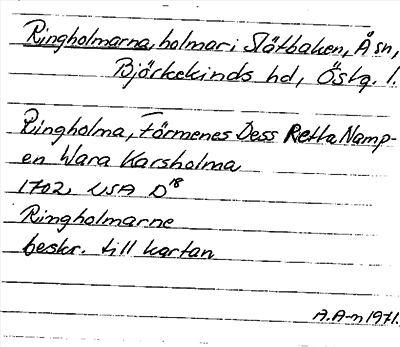 Ringholmarna, holmar i Slätbaken, Å sn,
Björkekinds hd, Östg. l.
Ringholma, Förmenes Dess Retta Namp-
en Wara Karsholma
1702, LSA D18
Ringholmarne
beskr. till kartan
A.A-n 1971.